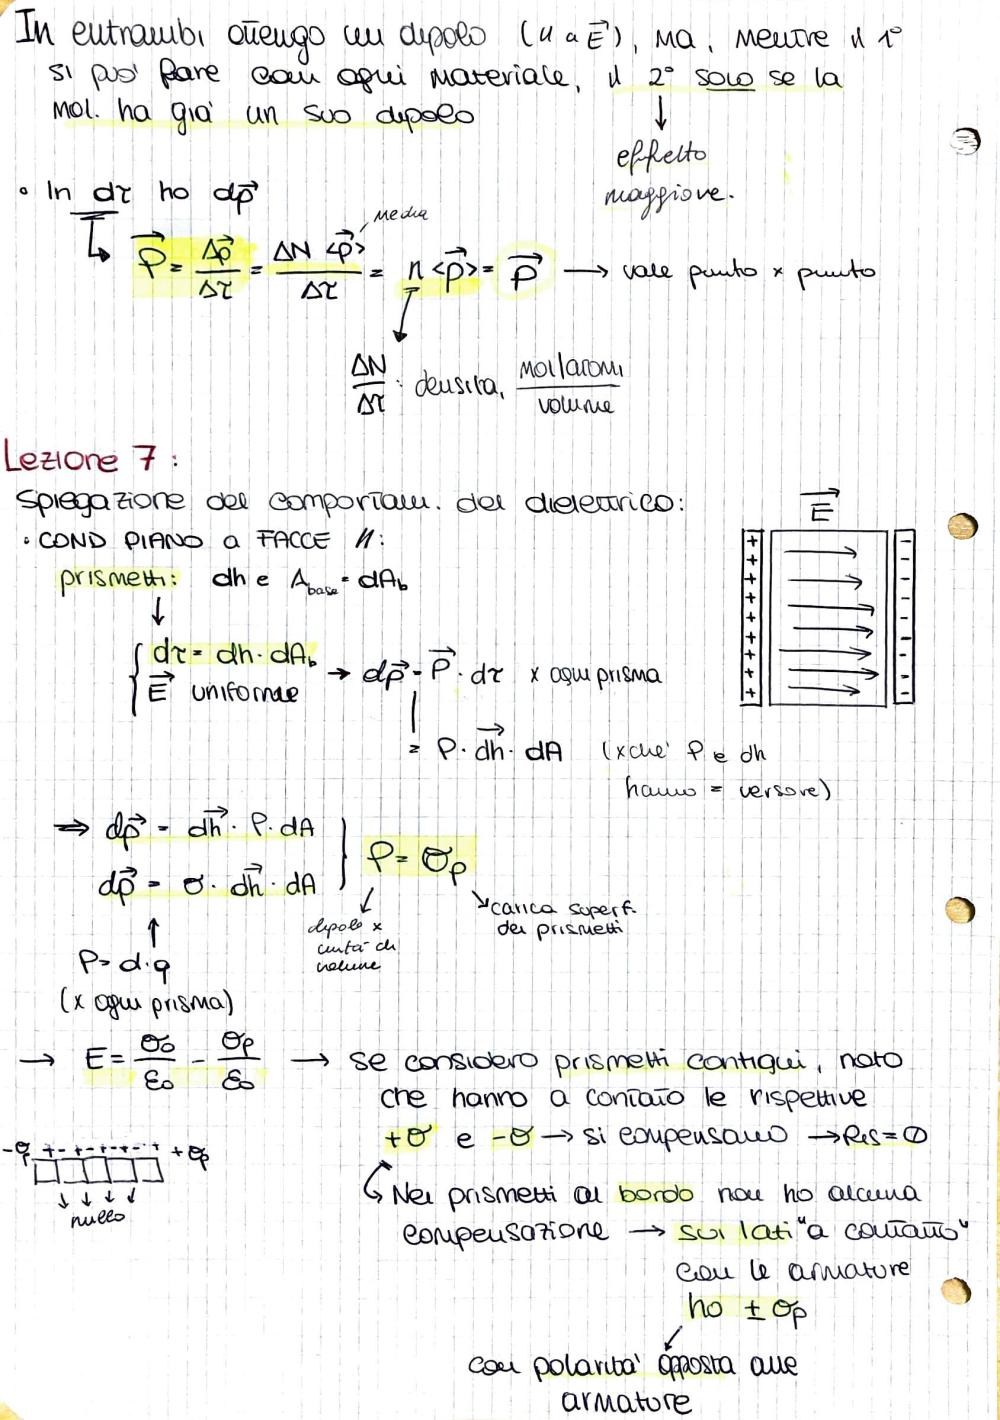 In entrambi ottengo un dipolo (// a E⃗), ma, mentre il 1°
si puo' fare con ogni materiale, il 2° solo se la
mol. ha gia' un suo dipolo
↓
effetto
maggiore.
• In dτ ho dp⃗
↳ P⃗ = Δp⃗/Δτ = ΔN <p⃗>/Δτ = n <p⃗> = P⃗ → vale punto x punto
media
ΔN/Δτ : densita, mol/atomi/volume
Lezione 7:
Spiegazione del comportam. del dielettrico:
• COND PIANO a FACCE //:
E⃗
prismetti: dh e A_base = dA_b
↓
+ + + + + + + + +
- - - - - - - - -
{ dτ = dh · dA_b
E⃗ uniforme → dp⃗ = P⃗ · dτ x ogni prisma
= P · dh⃗ · dA (xche' P e dh
hanno = versore)
⇒ dp⃗ = dh⃗ · P · dA
dp⃗ = σ · dh⃗ · dA } P = σ_p
↑
P = d · q
(x ogni prisma)
dipolo x
unità di
volume
carica superf.
dei prismetti
→ E = σ_0/ε_0 - σ_p/ε_0 → se considero prismetti contigui, noto
che hanno a contatto le rispettive
+σ e -σ → si compensano → Ris = 0
-σ_p +-+-+-+- +σ_p
↓ ↓ ↓ ↓
nullo
↳ Nei prismetti al bordo non ho alcuna
compensazione → sui lati "a contatto"
con le armature
ho ± σ_p
con polarita' opposta alle
armature